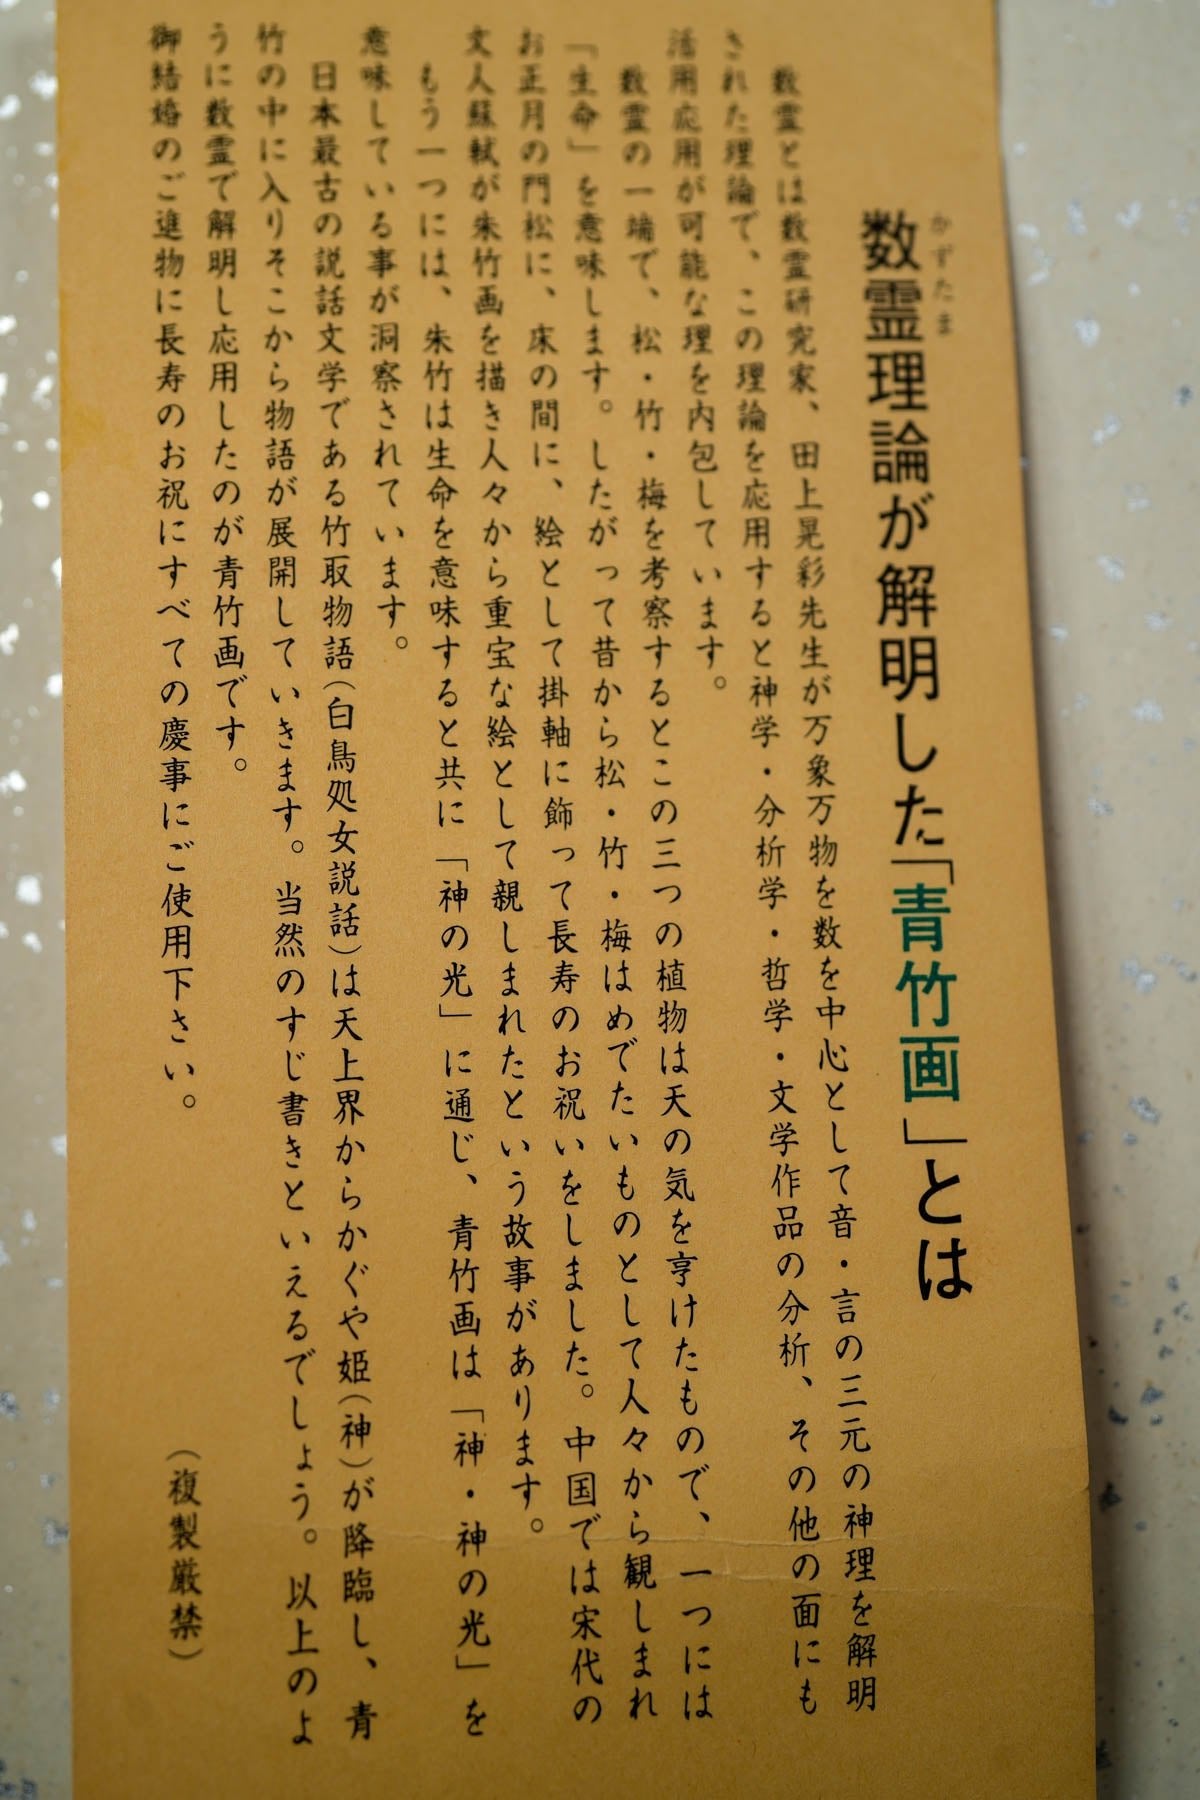 かずたま
数霊理論が解明した「青竹画」とは
数霊とは数霊研究家、田上晃彩先生が万象万物を数を中心として音・言の三元の神理を解明
された理論で、この理論を応用すると神学・分析学・哲学・文学作品の分析、その他の面にも
活用応用が可能な理を内包しています。
数霊の一端で、松・竹・梅を考察するとこの三つの植物は天の気を享けたもので、一つには
「生命」を意味します。したがって昔から松・竹・梅はめでたいものとして人々から観しまれ
お正月の門松に、床の間に、絵として掛軸に飾って長寿のお祝いをしました。中国では宋代の
文人蘇軾が朱竹画を描き人々から重宝な絵として親しまれたという故事があります。
もう一つには、朱竹は生命を意味すると共に「神の光」に通じ、青竹画は「神・神の光」を
意味している事が洞察されています。
日本最古の説話文学である竹取物語(白鳥処女説話)は天上界からかぐや姫(神)が降臨し、青
竹の中に入りそこから物語が展開していきます。当然のすじ書きといえるでしょう。以上のよ
うに数霊で解明し応用したのが青竹画です。
御結婚のご進物に長寿のお祝にすべての慶事にご使用下さい。
(複製厳禁)